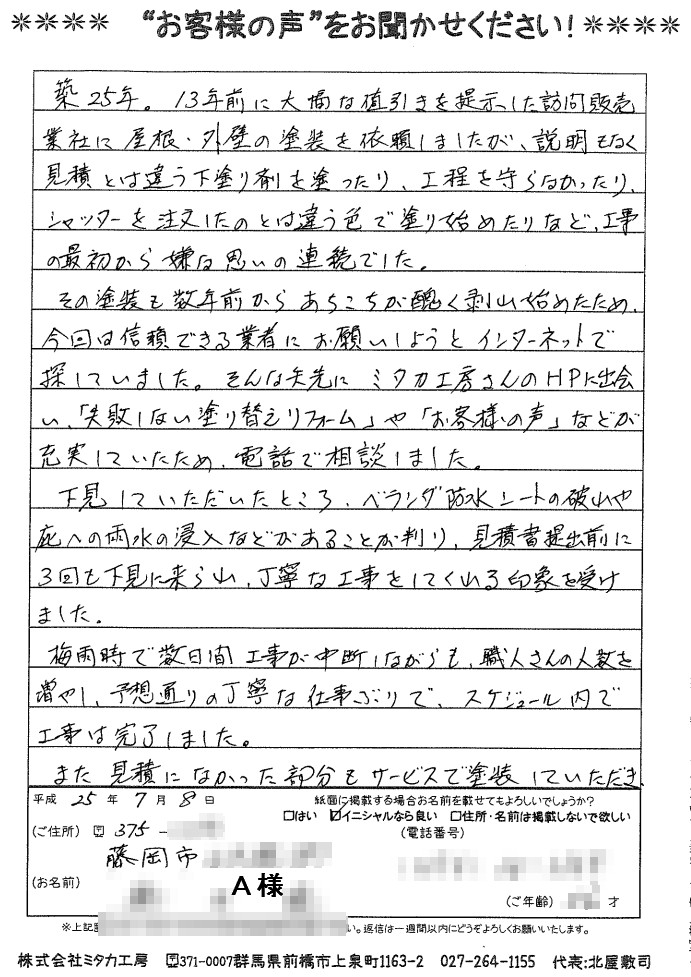 ＊＊＊＊ “お客様の声”をお聞かせください！＊＊＊＊
築25年。13年前に大幅な値引きを提示した訪問販売
業社に屋根・外壁の塗装を依頼しましたが、説明もなく
見積とは違う下塗り剤を塗ったり、工程を守らなかったり、
シャッターを注文したのとは違う色で塗り始めたりなど、工事
の最初から嫌な思いの連続でした。
その塗装も数年前からあちこちが醜く剥れ始めたため、
今回は信頼できる業者にお願いしようとインターネットで
探していました。そんな矢先にミタカ工房さんのHPに出会
い、「失敗しない塗り替えリフォーム」や「お客様の声」などが
充実していたため、電話で相談しました。
下見していただいたところ、ベランダ防水シートの破れや
庇への雨水の浸入などがあることが判り、見積書提出前に
3回も下見に来られ、丁寧な工事をしてくれる印象を受け
ました。
梅雨時で数日間工事が中断しながらも、職人さんの人数を
増やし、予想通りの丁寧な仕事ぶりで、スケジュール内で
工事は完了しました。
また見積になかった部分もサービスで塗装していただき
平成 25 年 7 月 8 日
紙面に掲載する場合お名前を載せてもよろしいでしょうか？
□はい ☑イニシャルなら良い □住所・名前は掲載しないで欲しい
（ご住所） 〒375-
（電話番号）
藤岡市
（お名前） A様
（ご年齢） 才
※上記 い。返信は一週間以内にどうぞよろしくお願いいたします。
株式会社ミタカ工房 〒371-0007群馬県前橋市上泉町1163-2 027-264-1155 代表:北屋敷司